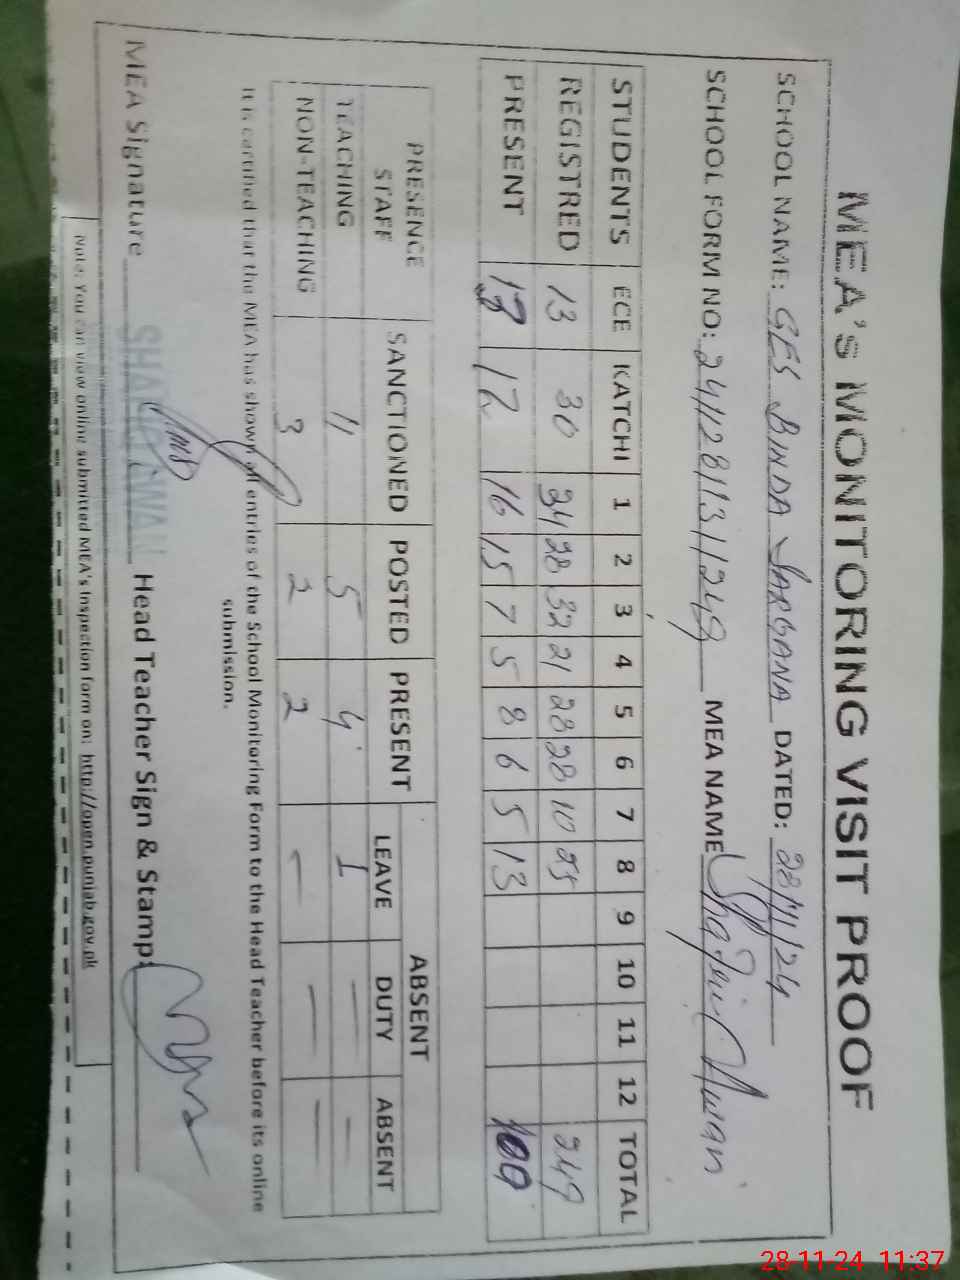 MEA'S MONITORING VISIT PROOF
SCHOOL NAME: GES BINDA SARGANA DATED: 28/11/24
SCHOOL FORM NO: MEA NAME Awan
STUDENTS ECE KATCHI 1 2 3 4 5 6 7 8 9 10 11 12 TOTAL
REGISTRED 13 30 24 28 32 21 28 28 10 25
PRESENT 12 16 15 7 5 8 6 5 13 100
PRESENCE STAFF SANCTIONED POSTED PRESENT ABSENT
LEAVE DUTY ABSENT
TEACHING 11 5 4 1 — —
NON-TEACHING 3 2 2 — — —
It is certified that the MEA has shown all entries of the School Monitoring Form to the Head Teacher before its online
submission.
MEA Signature Head Teacher Sign & Stamp:
Note: You can view online submitted MEA's Inspection form on: http://open.punjab.gov.pk
28-11-24 11:37